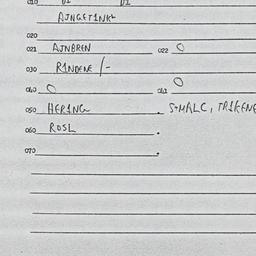 010
AJNGETINK
020
021 AJNBREN 022 O
030 RINDENE /-
040 O 041 O
050 HERING . S-MALC, TRIKENE
060 ROSL .
070 .